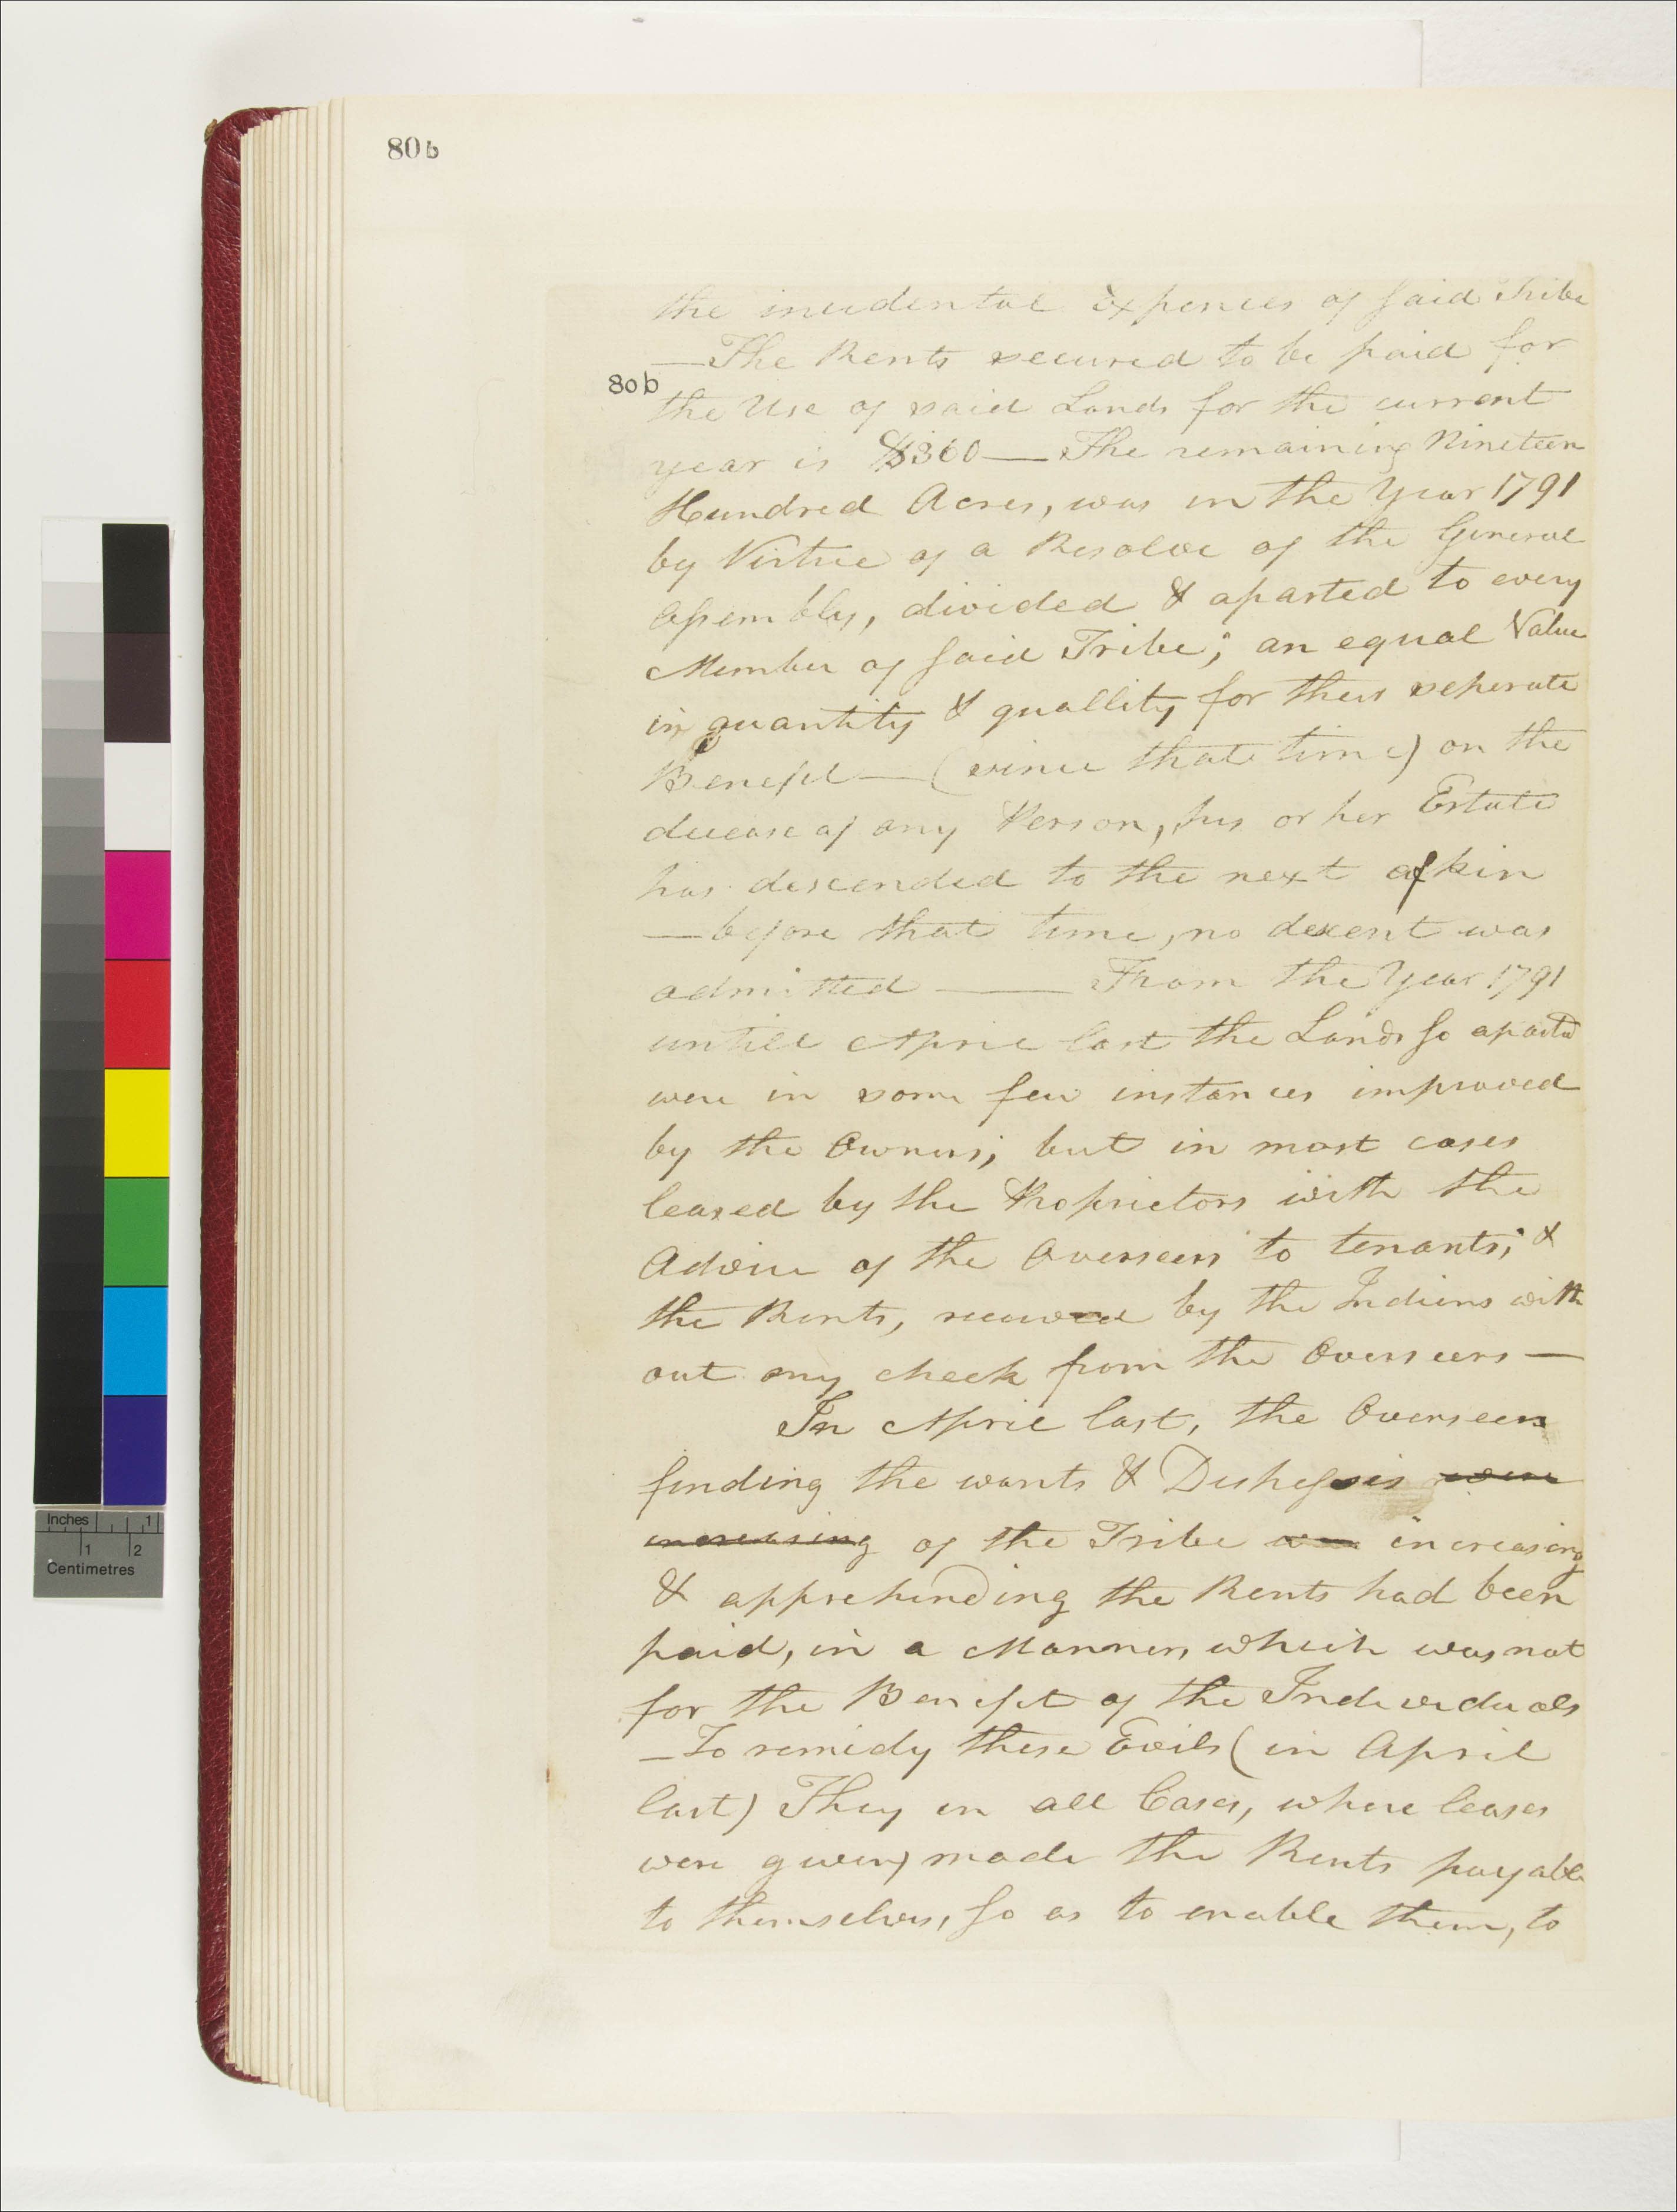 80b
the incidental expences of said Tribe
—The Rents secured to be paid for
80b
the Use of said Lands for the current
year is $360— The remaining Nineteen
Hundred Acres, was in the Year 1791
by Virtue of a Resolve of the General
Assembly, divided & aparted to every
Member of said Tribe; an equal Value
in quantity & quallity for their seperate
Benefit — (since that time) on the
decease of any Person, his or her Estate
has descended to the next of kin
—before that time, no decent was
admitted — From the Year 1791
untill April last the Lands so aparted
were in some few instances improved
by the Owners; but in most cases
leased by the Proprietors with the
Advice of the Overseers to tenants; &
the Rents, received by the Indians with
out any check from the Overseers —
In April last, the Overseers
finding the wants & Distresses were
increasing of the Tribe increasing
& apprehending the Rents had been
paid, in a Manner, which was not
for the Benefit of the Individuals
—To remidy these Evils (in April
last) They in all Cases, where leases
were given, made the Rents payable
to themselves, so as to enable them, to
Inches 1
1 2
Centimetres